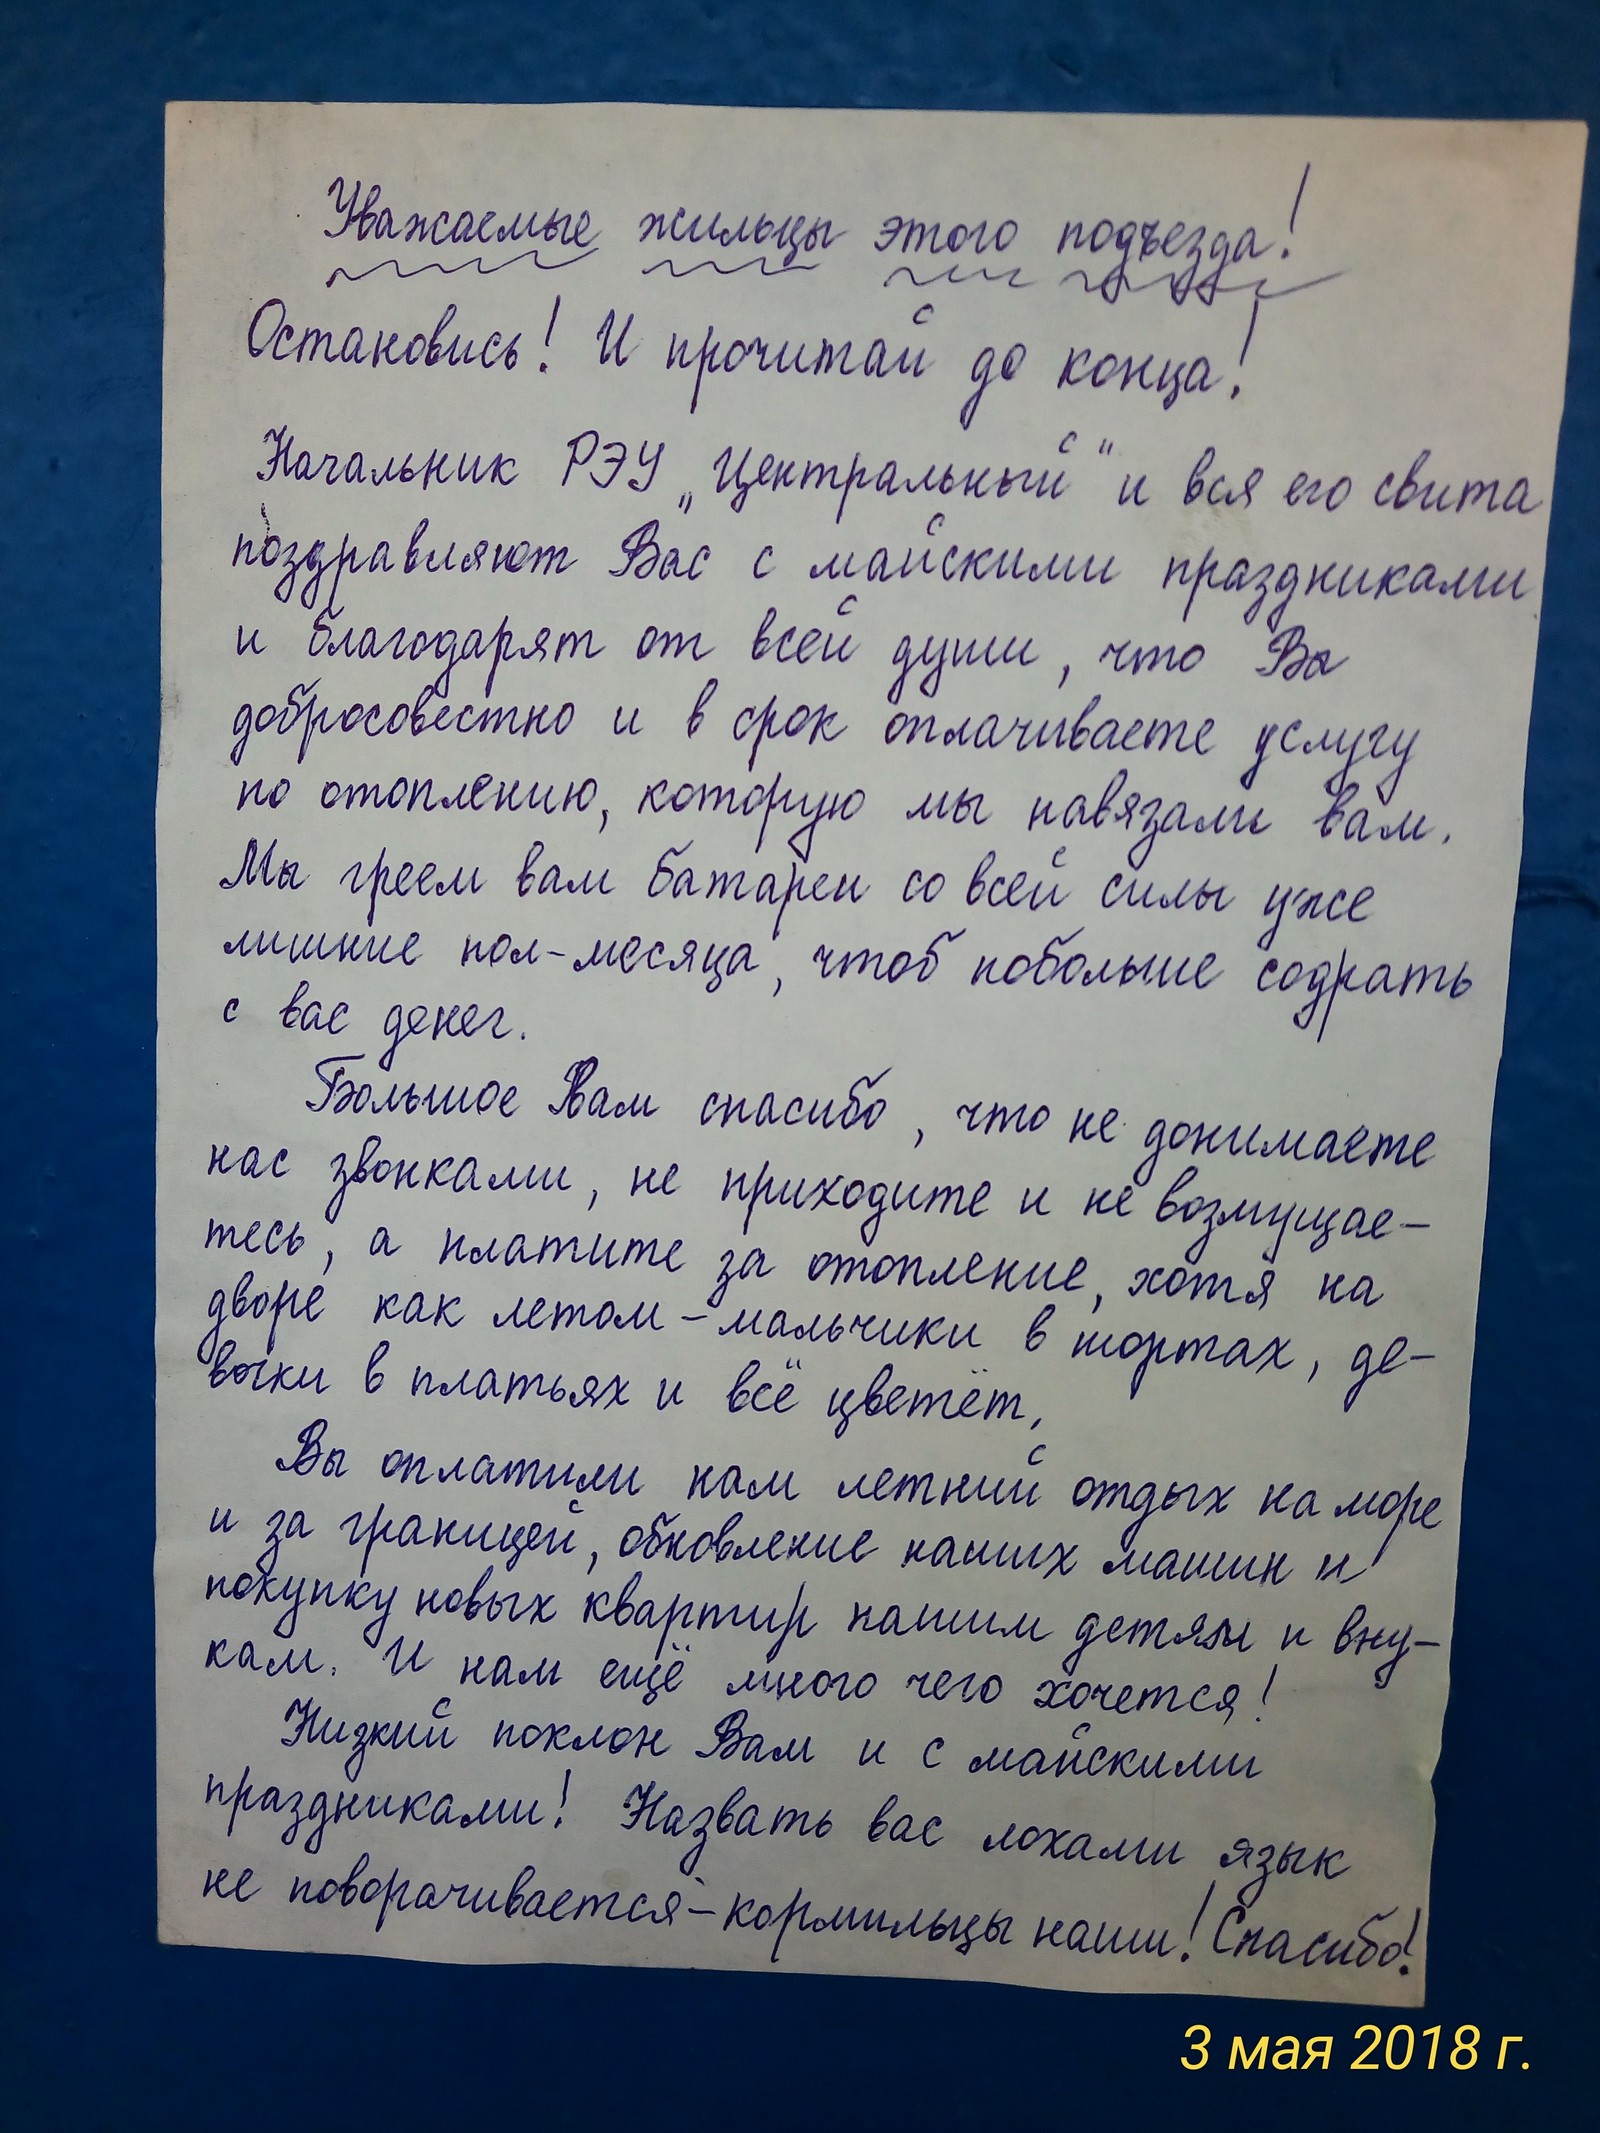 Уважаемые жильцы этого подъезда!
Остановись! И прочитай до конца!
Начальник РЭУ „Центральный“ и вся его свита
поздравляют Вас с майскими праздниками
и благодарят от всей души, что Вы
добросовестно и в срок оплачиваете услугу
по отоплению, которую мы навязали вам.
Мы греем вам батареи со всей силы уже
лишние пол-месяца, чтоб побольше содрать
с вас денег.
Большое Вам спасибо, что не донимаете
нас звонками, не приходите и не возмущае-
тесь, а платите за отопление, хотя на
дворе как летом - мальчики в шортах, де-
вочки в платьях и всё цветёт,
Вы оплатили нам летний отдых на море
и за границей, обновление наших машин и
покупку новых квартир нашим детям и вну-
кам. И нам ещё много чего хочется!
Низкий поклон Вам и с майскими
праздниками! Назвать вас лохами язык
не поворачивается - кормильцы наши! Спасибо!
3 мая 2018 г.